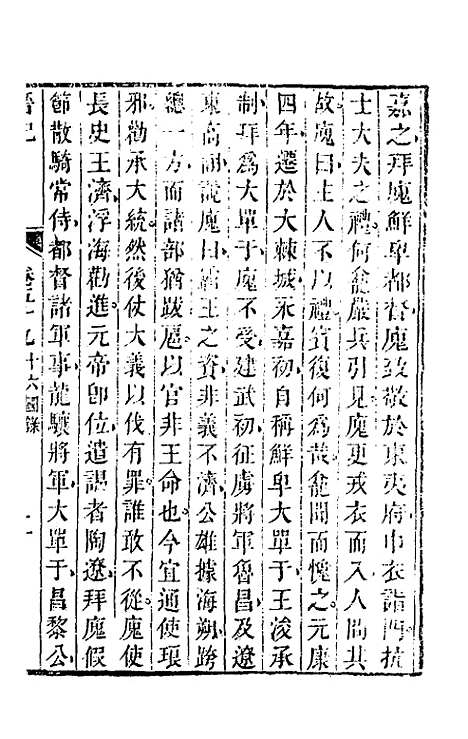 嘉之拜廆鮮卑都督廆致敬於東夷府巾衣詣門抗
士大夫之禮何龕嚴兵引見廆更戎衣而入人問其
故廆曰主人不以禮賓復何為哉龕聞而愧之元康
四年遷於大棘城永嘉初自稱鮮卑大單于王浚承
制拜為大單于廆不受建武初征虜將軍魯昌及遼
東高詡說廆曰霸王之資非義不濟公雄據海朔跨
總一方而諸部猶跋扈以官非王命也今宜通使琅
邪勸承大統然後仗大義以伐有罪誰敢不從廆使
長史王濟浮海勸進元帝卽位遣謁者陶遼拜廆假
節散騎常侍都督諸軍事龍驤將軍大單于昌黎公
晉記 卷五十九 十六國錄